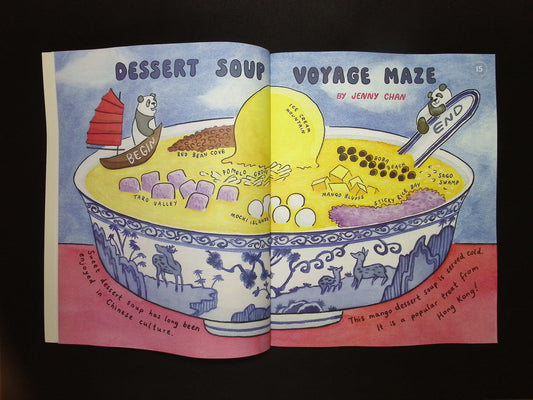 DESSERT SOUP VOYAGE MAZE
15
BY JENNY CHAN
BEGIN
END
ICE CREAM
MOUNTAIN
RED BEAN COVE
BOBA
BEACH
POMELO GROVE
SAGO
SWAMP
TARO VALLEY
MANGO BLUFFS
STICKY RICE BAY
MOCHI ISLANDS
Sweet dessert soup has long been
enjoyed in Chinese culture.
This mango dessert soup is served cold.
It is a popular treat from
Hong Kong!